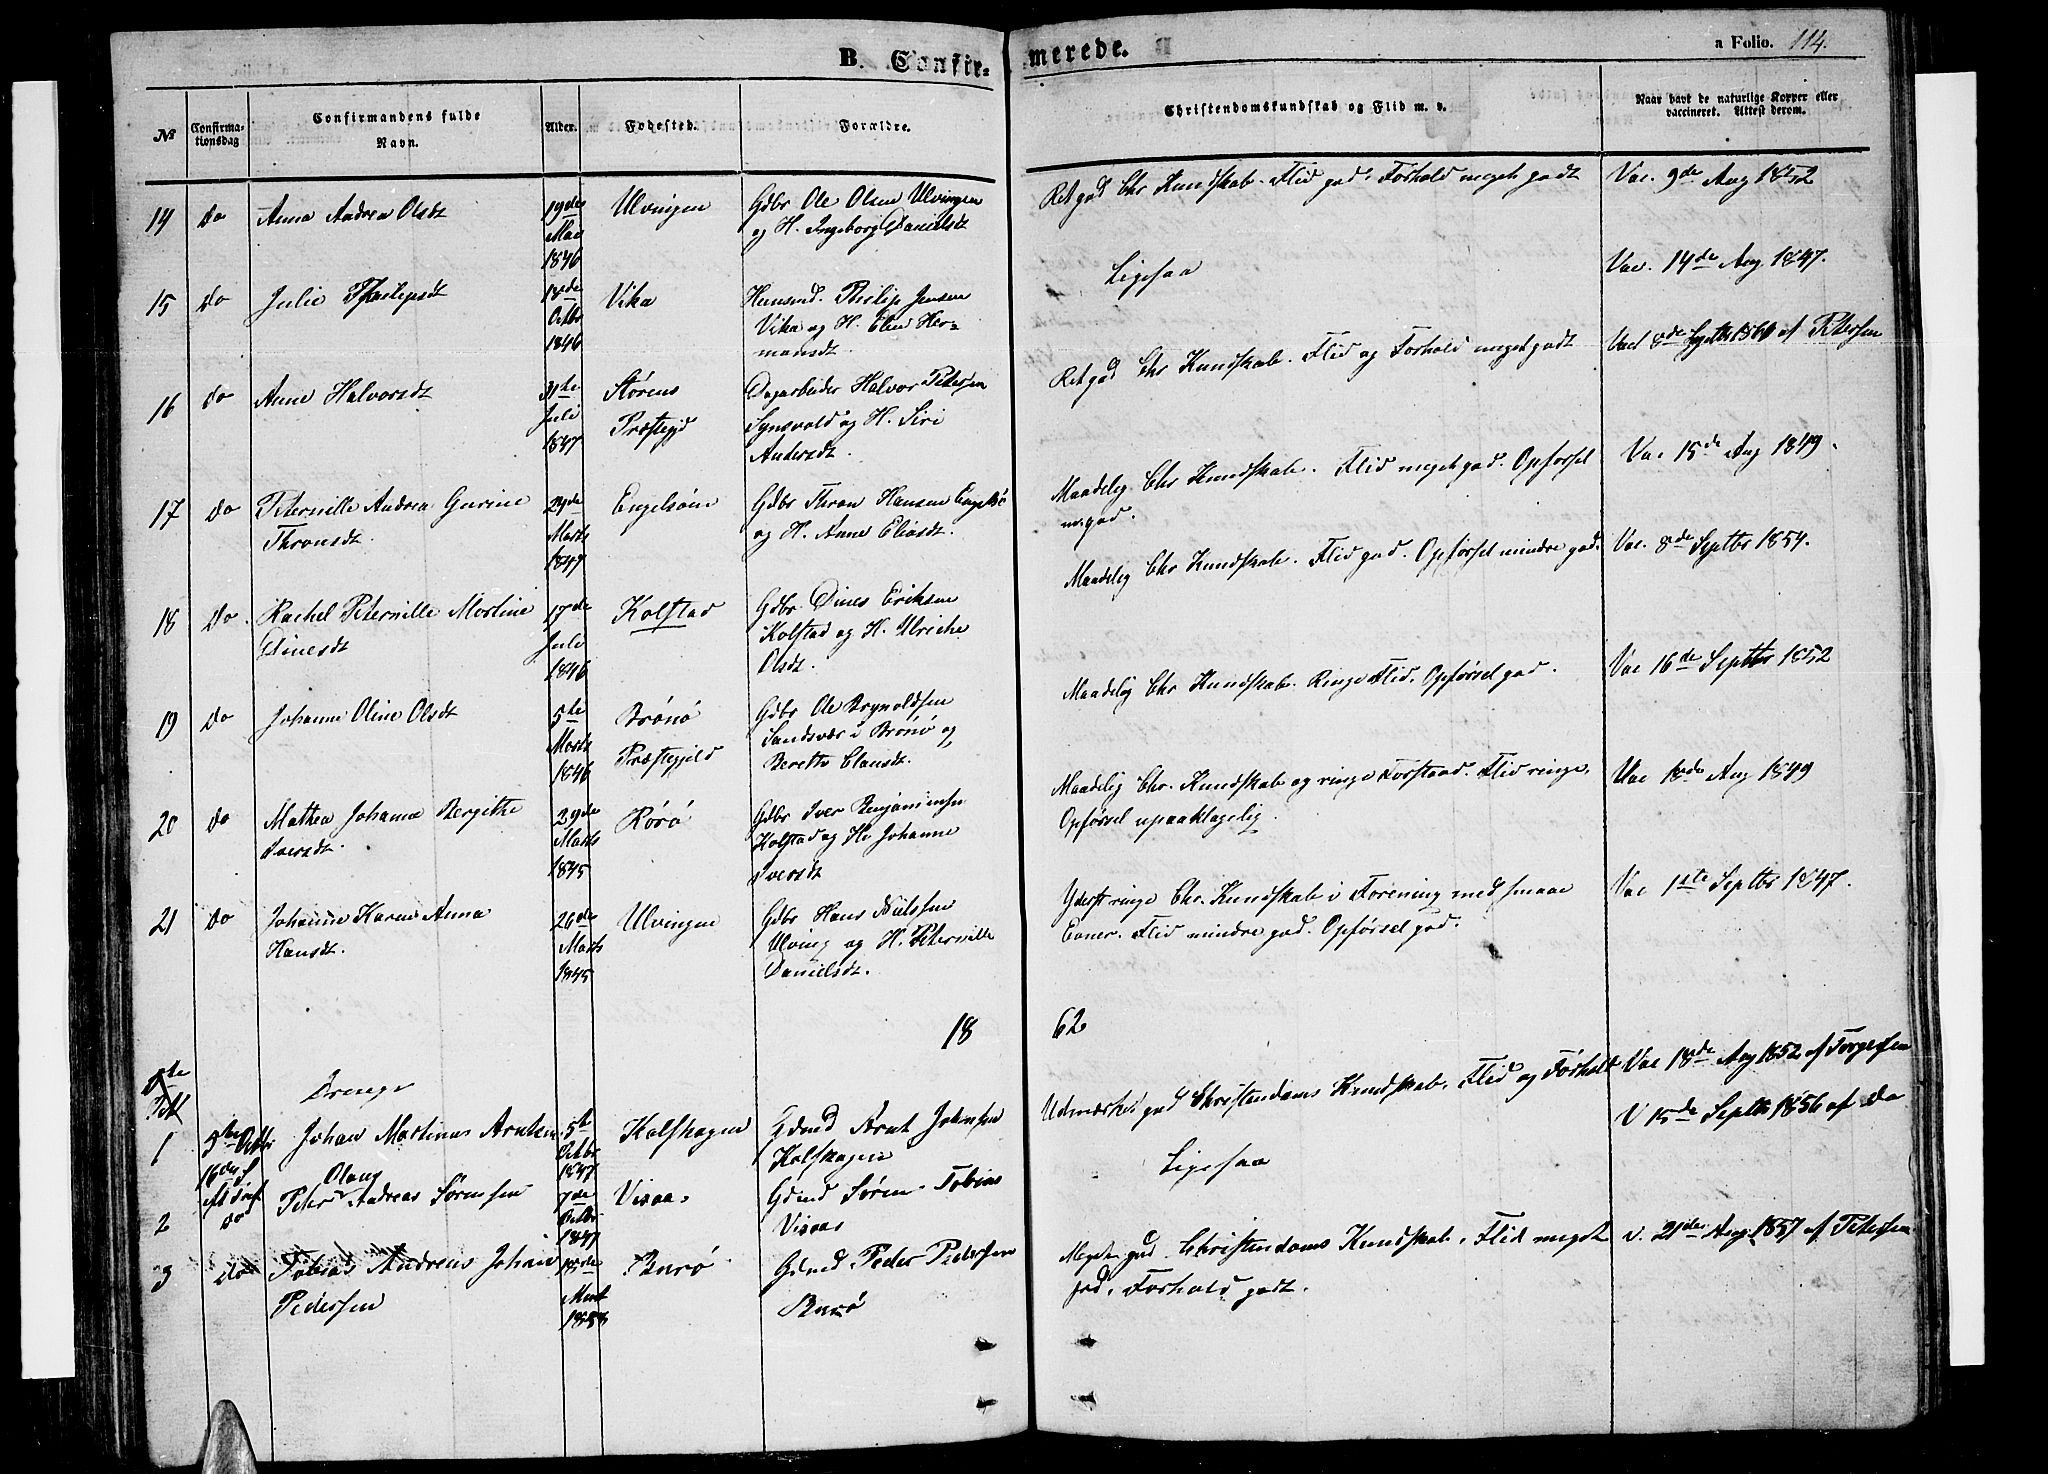 B. Confir-
merede.
a Folio. 114.
No
Confirma-
tionsdag
Confirmandens fulde
Navn.
Alder.
Fødested.
Forældre.
Christendomskundskab og Flid m. v.
Naar havt de naturlige Kopper eller
vaccineret. Attest derom.
14 do Anna Andrea Olsdt 19de Mai 1846 Ulvingen Gdbr Ole Olsen Ulvingen
og H. Ingeborg Danielsdt
Ret god Chr Kundskab. Flid god. Forhold meget godt Vac. 9de Aug 1852
15 do Julie Philipsdt 18de Octbr 1846 Vika Huusmd. Philip Jensen
Vika og H. Elen Her-
mansdt.
Ligesaa Vac. 14de Aug 1847.
16 do Anne Halvorsdt 31te Juli 1847 Størens
Præstegjd
Dagarbeider Halvor Petersen
Synsvold og H. Siri
Andersdt.
Ret god Chr Kundskab. Flid og Forhold meget godt Vacc 8de Septbr 1860 af Petersen
17 do Peternille Andrea Gurine
Thronsdt.
Marts Engelsøen Gdbr Thron Hansen Engelsø
og H. Anne Eliasdt.
Maadelig Chr Kundskab. Flid meget god. Opførsel
m. god.
Vac 15de Aug 1849.
18 do Rachel Peternille Martine
Dinesdt
17de Juli 1846 Kolstad Gdbr Dines Eriksen
Kolstad og H. Ulriche
Olsdt.
Maadelig Chr Kundskab. Flid god. Opførsel mindre god. Vac. 8de Septbr 1854.
19 do Johanne Oline Olsdt 5te Marts 1846 Brønø
Præstegjeld
Gdbr Ole Brynoldsen
Sandsvær i Brønø og
Berethe Clausdt.
Maadelig Chr Kundskab. Ringe Flid. Opførsel god. Vac 16de Septbr 1852
20 do Mathea Johanna Bergithe
Iversdt.
29de Marts 1845 Rørø Gdbr Iver Benjaminsen
Kolstad og H. Johanne
Iversdt
Maadelig Chr. Kundskab og ringe Forstand. Flid ringe.
Opførsel upaaklagelig.
Vac 18de Aug 1849
21 do Johanne Karen Anna
Hansdt.
26de Marts 1845 Ulvingen Gdbr Hans Nielsen
Ulving og H. Peternille
Danielsdt.
Yderst ringe Chr. Kundskab i Forening med smaae
Evner. Flid mindre god. Opførsel god.
Vac 1ste Septbr 1847.
18 62
Drenge
1 5te Octbr
16de S.
Johan Martinus Arntsen 5te Octbr 1847 Kalfhagen Gdmd Arnt Johnsen
Kalfhagen
Udmærket god Christendoms Kundskab. Flid og Forhold Vac 18de Aug 1852 af Torgersen
2 do Peter Olaus Andreas Sørensen 7de Octbr 1847 Visaa. Gdmd Søren Tobias
Visaas
Ligesaa V 15de Septbr 1856 af do
3 do Tobias Andreas Johan
Pedersen
18de Burø Gdmd Peder Pedersen
Burø
Meget god Christendoms Kundskab. Flid meget
god. Forhold godt.
v. 21de Aug 1857 af Petersen